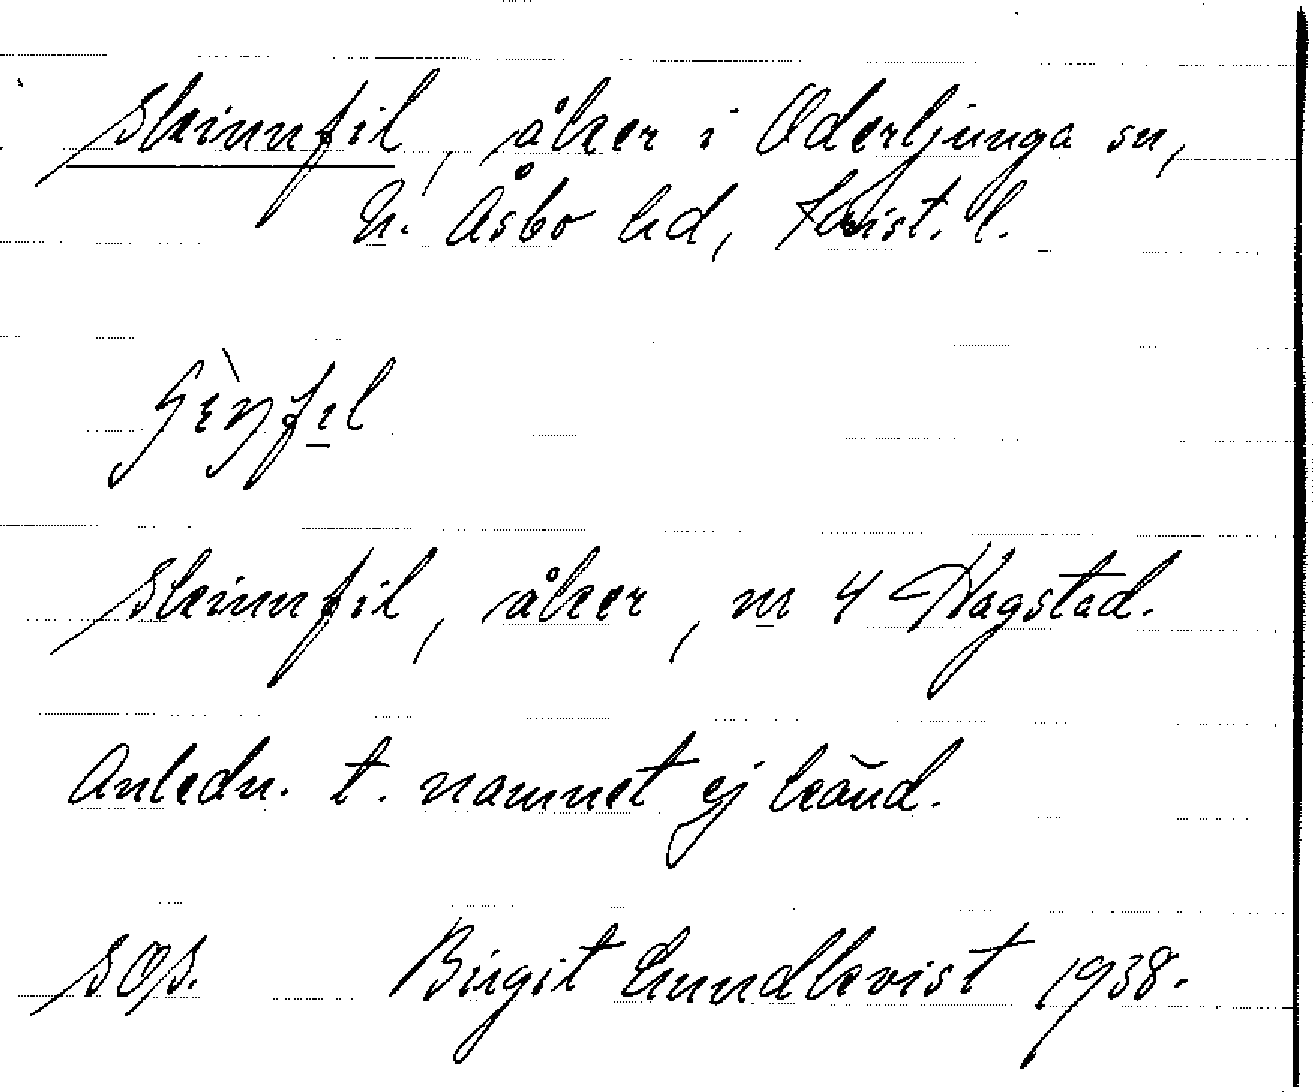 Skinnfil, åker i Oderljunga sn,
N. Åsbo hd, Krist. l.
Skinnfil, åker, nr 4 Hagstad.
Anledn. t. namnet ej känd.
sqs. Birgit Lundkvist 1938.